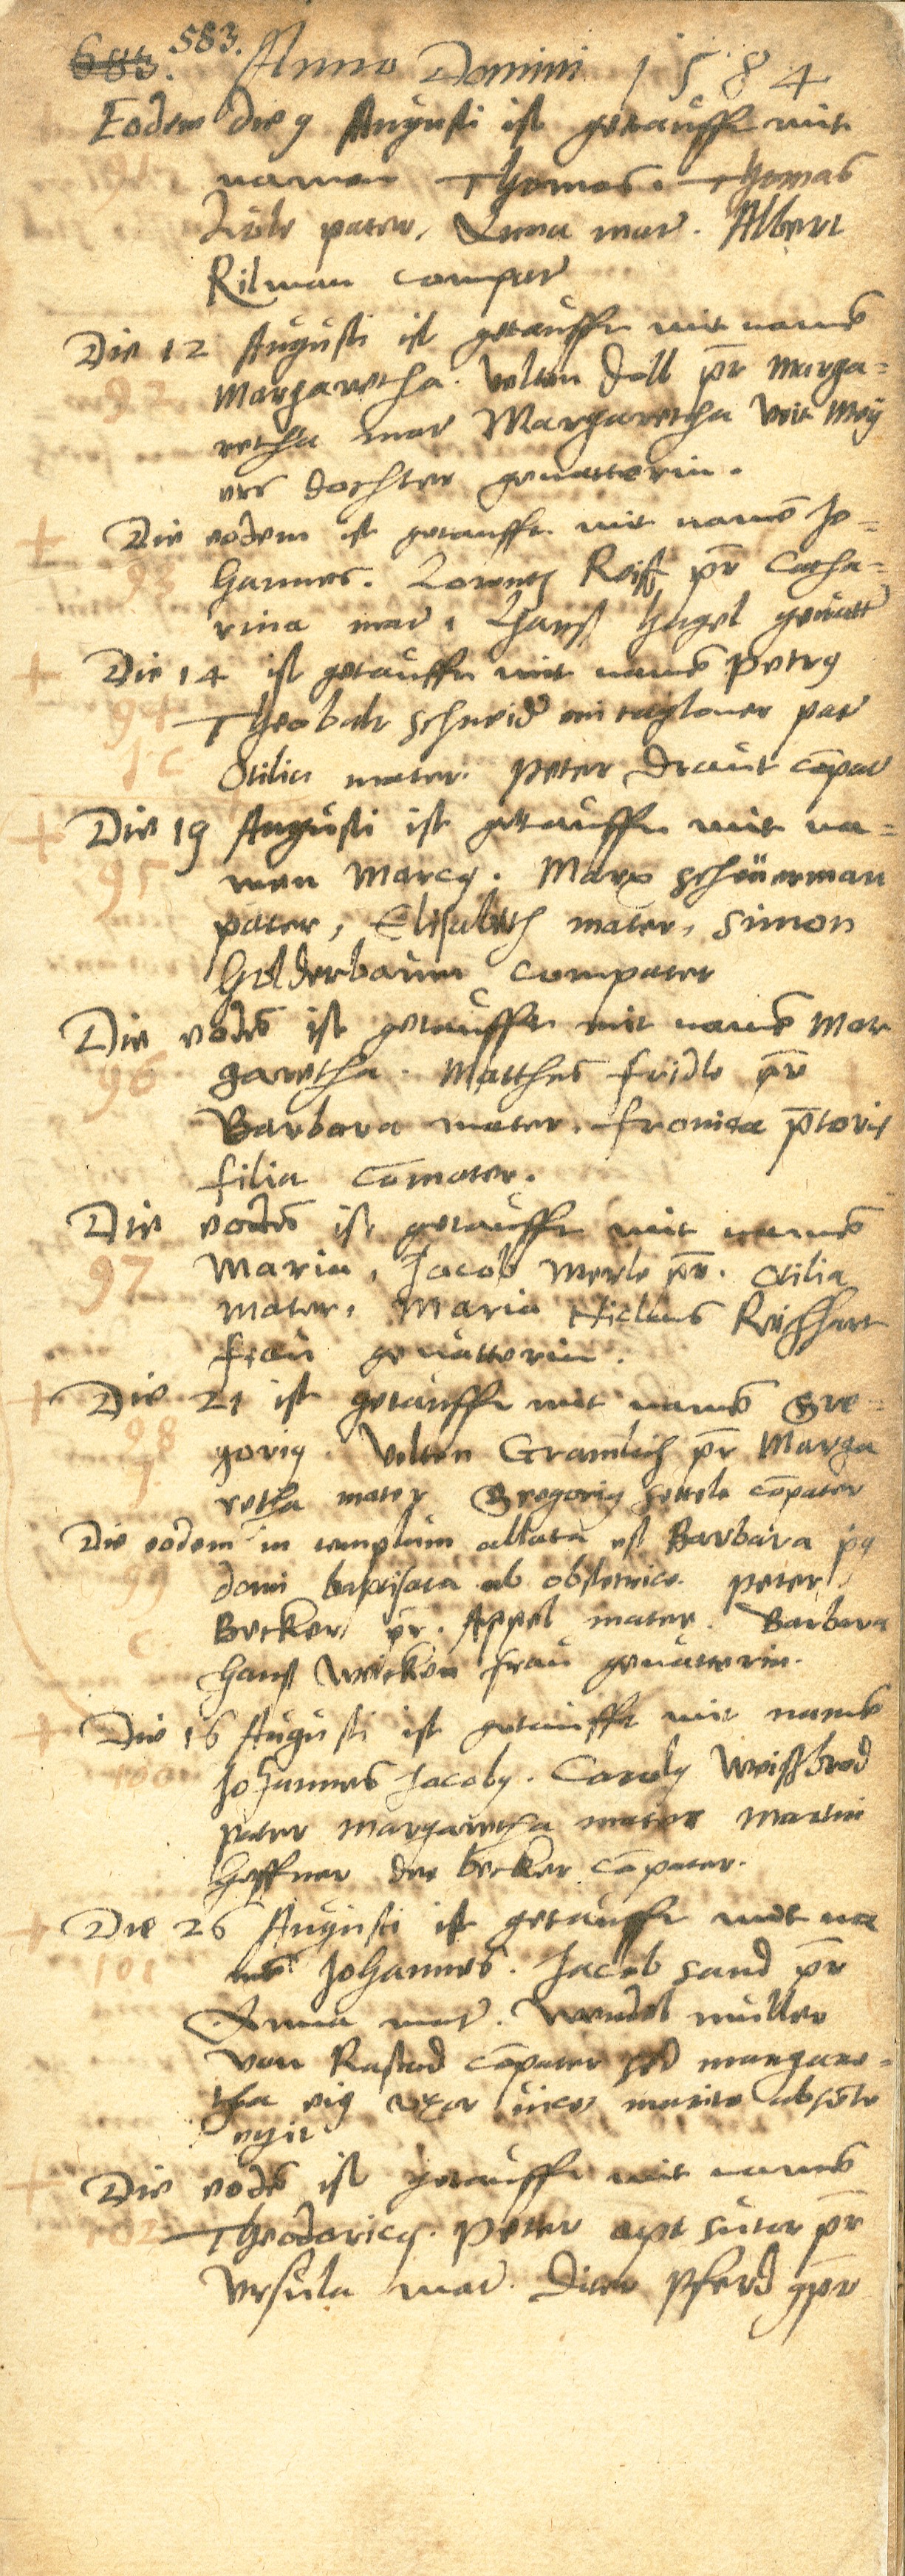 683. 583. Anno Domini 1584
Eodem die 9 Augusti ist getaufft mit
91
namen Thomas. Thomas
pater, Anna mat̄. Albert
Rilman compat̄
Die 12 Augusti ist getaufft mit namē
92
Margaretha. Velten Doll pr̄ Marga=
retha mat̄ Margaretha Veit Mey
ers dochter geuatterin.
Die eodem ist getaufft mit namē Jo=
93
hannes. Lorentz Reiff pr̄ Catha=
rina mat̄, Hanß Hugel geuatt̄
Die 14 ist getaufft mit namē Petrꝰ
94
Theobalt Schneid̄ ein taglöner pat̄
Otilia mater. Peter Draut cōpat̄
Die 19 Augusti ist getaufft mit na=
95
men Marcꝰ. Marx Scheüerman
pater, Elisabeth mater, Simon
Holderbaum compater
Die eodē ist getaufft mit namē Mar
96
garetha. Matthes Fridle pr̄
Barbara mater. Fronica p̄toris
filia cōmater.
Die eodē ist getaufft mit namē
97
Maria, Jacob Merle pr̄. Otilia
mater, Maria Niclaus Reichhart
frau geuatterin.
Die 21 ist getaufft mit namē Gre=
98
goriꝰ. Velten Gramlich pr̄ Marga
retha mater Gregoriꝰ cōpater
Die eodem in templum allata est Barbara pꝰ
99
domi baptisata ab obstetrice. Peter
Becker pr̄. Appel mater. Barbara
Hanß Weicken frau geuatterin.
Die 16 Augusti ist getaufft mit namē
100
Johannes Jacobꝰ. Carolꝰ Weißbrod
pater Margaretha mater Martin
Heffner der becker cōpater.
Die 26 Augusti ist getaufft mit na
101
mē Johannes. Jacob Sand pr̄
Anna mat̄. Wendel müller
von Rastad cōpater sed margare=
tha eiꝰ uxor uices marito absēte
egit
Die eodē ist getaufft mit namē
102
Theodoricꝰ. Peter apt sutor pr̄
Vrsula mat̄. Diter Pferd gpr̄